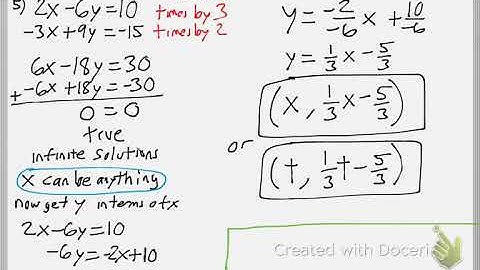 5) 2x-6y=10 times by 3
-3x+9y=-15 times by 2
6x-18y=30
+ -6x+18y=-30
0=0
true
infinite solutions
x can be anything
now get y in terms of x
2x-6y=10
-6y=-2x+10
y=\frac{-2}{-6}x+\frac{10}{-6}
y=\frac{1}{3}x-\frac{5}{3}
(x, \frac{1}{3}x-\frac{5}{3})
or
(t, \frac{1}{3}t-\frac{5}{3})
Created with Doceri